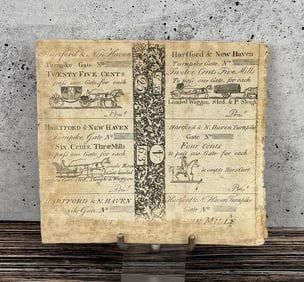 Hartford & New Haven
Turnpike Gate No
TWENTY FIVE CENTS
pass one Gate for each
Pres.t
HARTFORD & NEW HAVEN
Turnpike Gate No
Six Cents Three Mills
pass one Gate for each
Pres.t
HARTFORD & N. HAVEN
Gate No
Hartford & New Haven
Turnpike Gate No
Twelve Cents Five Mills
to pass one Gate for each
Loaded Waggon, Sled, & P. Sleigh
Pres.t
Hartford & N. Haven Turnpike
Gate No
Four Cents
to pass one Gate for each
& empty
Pres.t
Hartford & N. Haven Turnpike
Gate No
MILLS